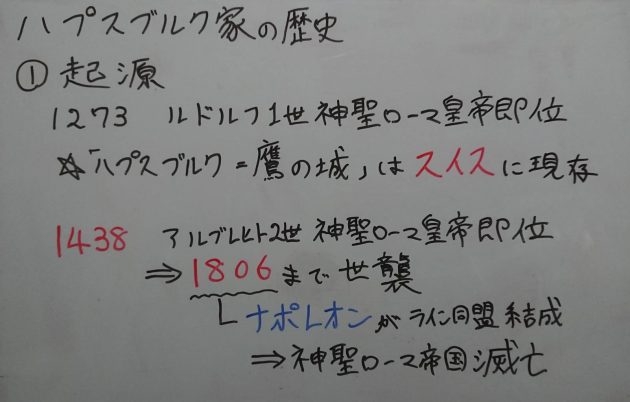 ハプスブルク家の歴史
① 起源
1273 ルドルフ1世 神聖ローマ皇帝即位
☆「ハプスブルク=鷹の城」は スイス に現存
1438 アルブレヒト2世 神聖ローマ皇帝即位
⇒1806まで世襲
ナポレオンが ライン同盟 結成
⇒神聖ローマ帝国滅亡